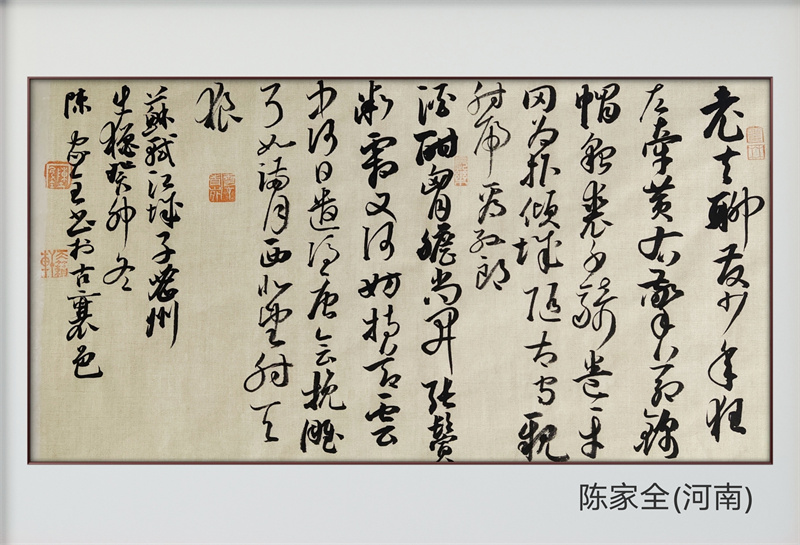 老夫聊发少年狂
左牵黄右擎苍錦
帽貂裘千騎卷平
冈为报傾城随太守親
射虎看孙郎
酒酣胸膽尚开张鬢
微霜又何妨持节雲
中何日遣冯唐会挽雕
弓如满月西北望射天
狼
蘇軾江城子密州
出猎癸卯冬
陈家全书於古襄邑
陈家全(河南)